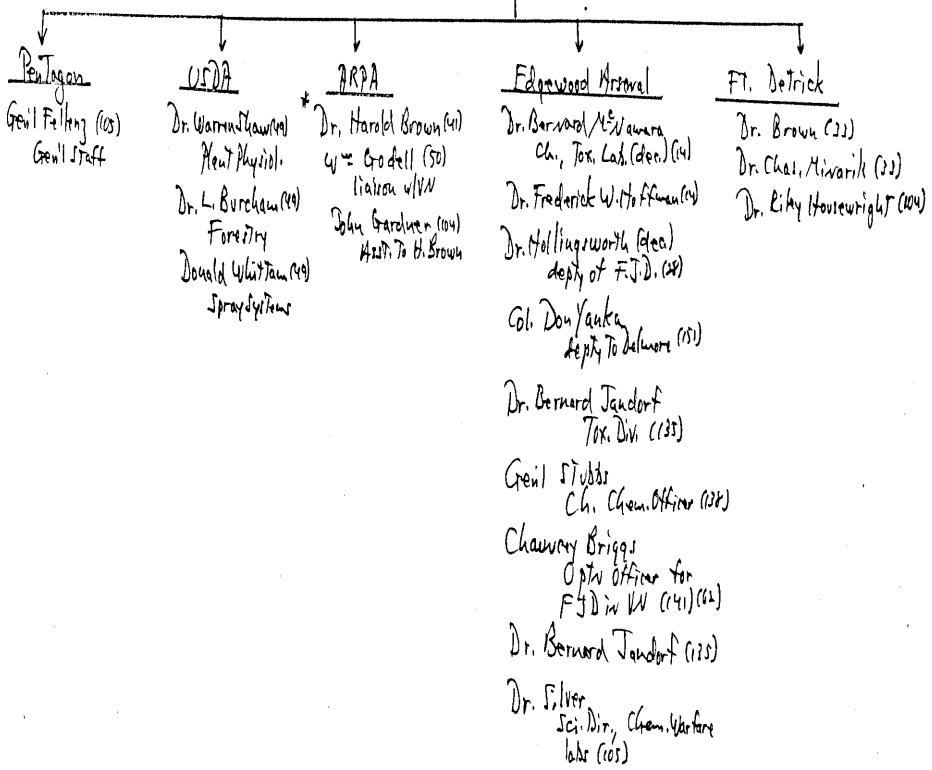 Pentagon
Gen'l Felteng (105)
Gen'l Staff
USDA
Dr. Warren Shaw (49)
Plant Physiol.
Dr. L. Burcham (49)
Forestry
Donald Whittam (49)
Spray Systems
* ARPA
Dr. Harold Brown (41)
Wm Godell (50)
liaison w/VN
John Gardner (104)
Asst. To H. Brown
Edgewood Arsenal
Dr. Bernard McNamara
Ch., Tox. Lab. (dec.) (14)
Dr. Frederick W. Hoffman (14)
Dr. Hollingsworth (dec.)
depty of F.J.D. (28)
Col. Don Yanka
depty To Delmore (151)
Dr. Bernard Jandorf
Tox. Div. (135)
Gen'l Stubbs
Ch. Chem. Officer (138)
Chauncey Briggs
Optn Officer for
FJD in VN (141) (62)
Dr. Bernard Jandorf (135)
Dr. Silver
Sci. Dir., Chem. Warfare
labs (105)
Ft. Detrick
Dr. Brown (33)
Dr. Chas. Minarik (33)
Dr. Riley Housewright (104)